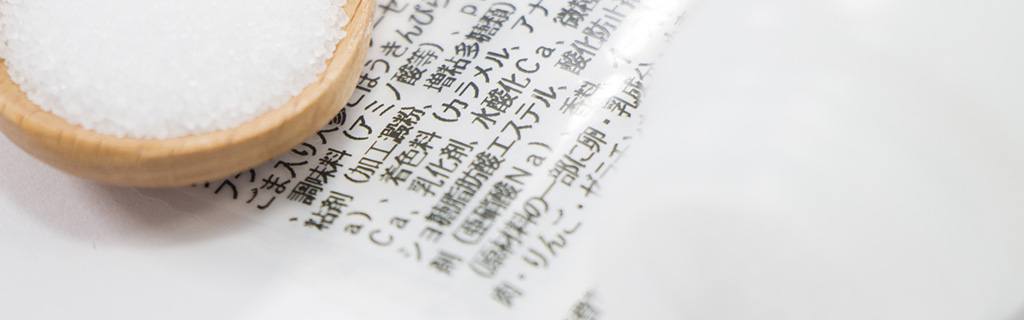 ごま入り人参ごぼうきんぴら
、調味料（アミノ酸等）、ｐ
粘剤（加工澱粉、増粘多糖類）
ａ）、着色料（カラメル、アナ
Ｃａ、乳化剤、水酸化Ｃａ、微粒
ショ糖脂肪酸エステル、酸化防止
剤（亜硝酸Ｎａ）香料
（原材料の一部に卵・乳成分
肉・りんご・